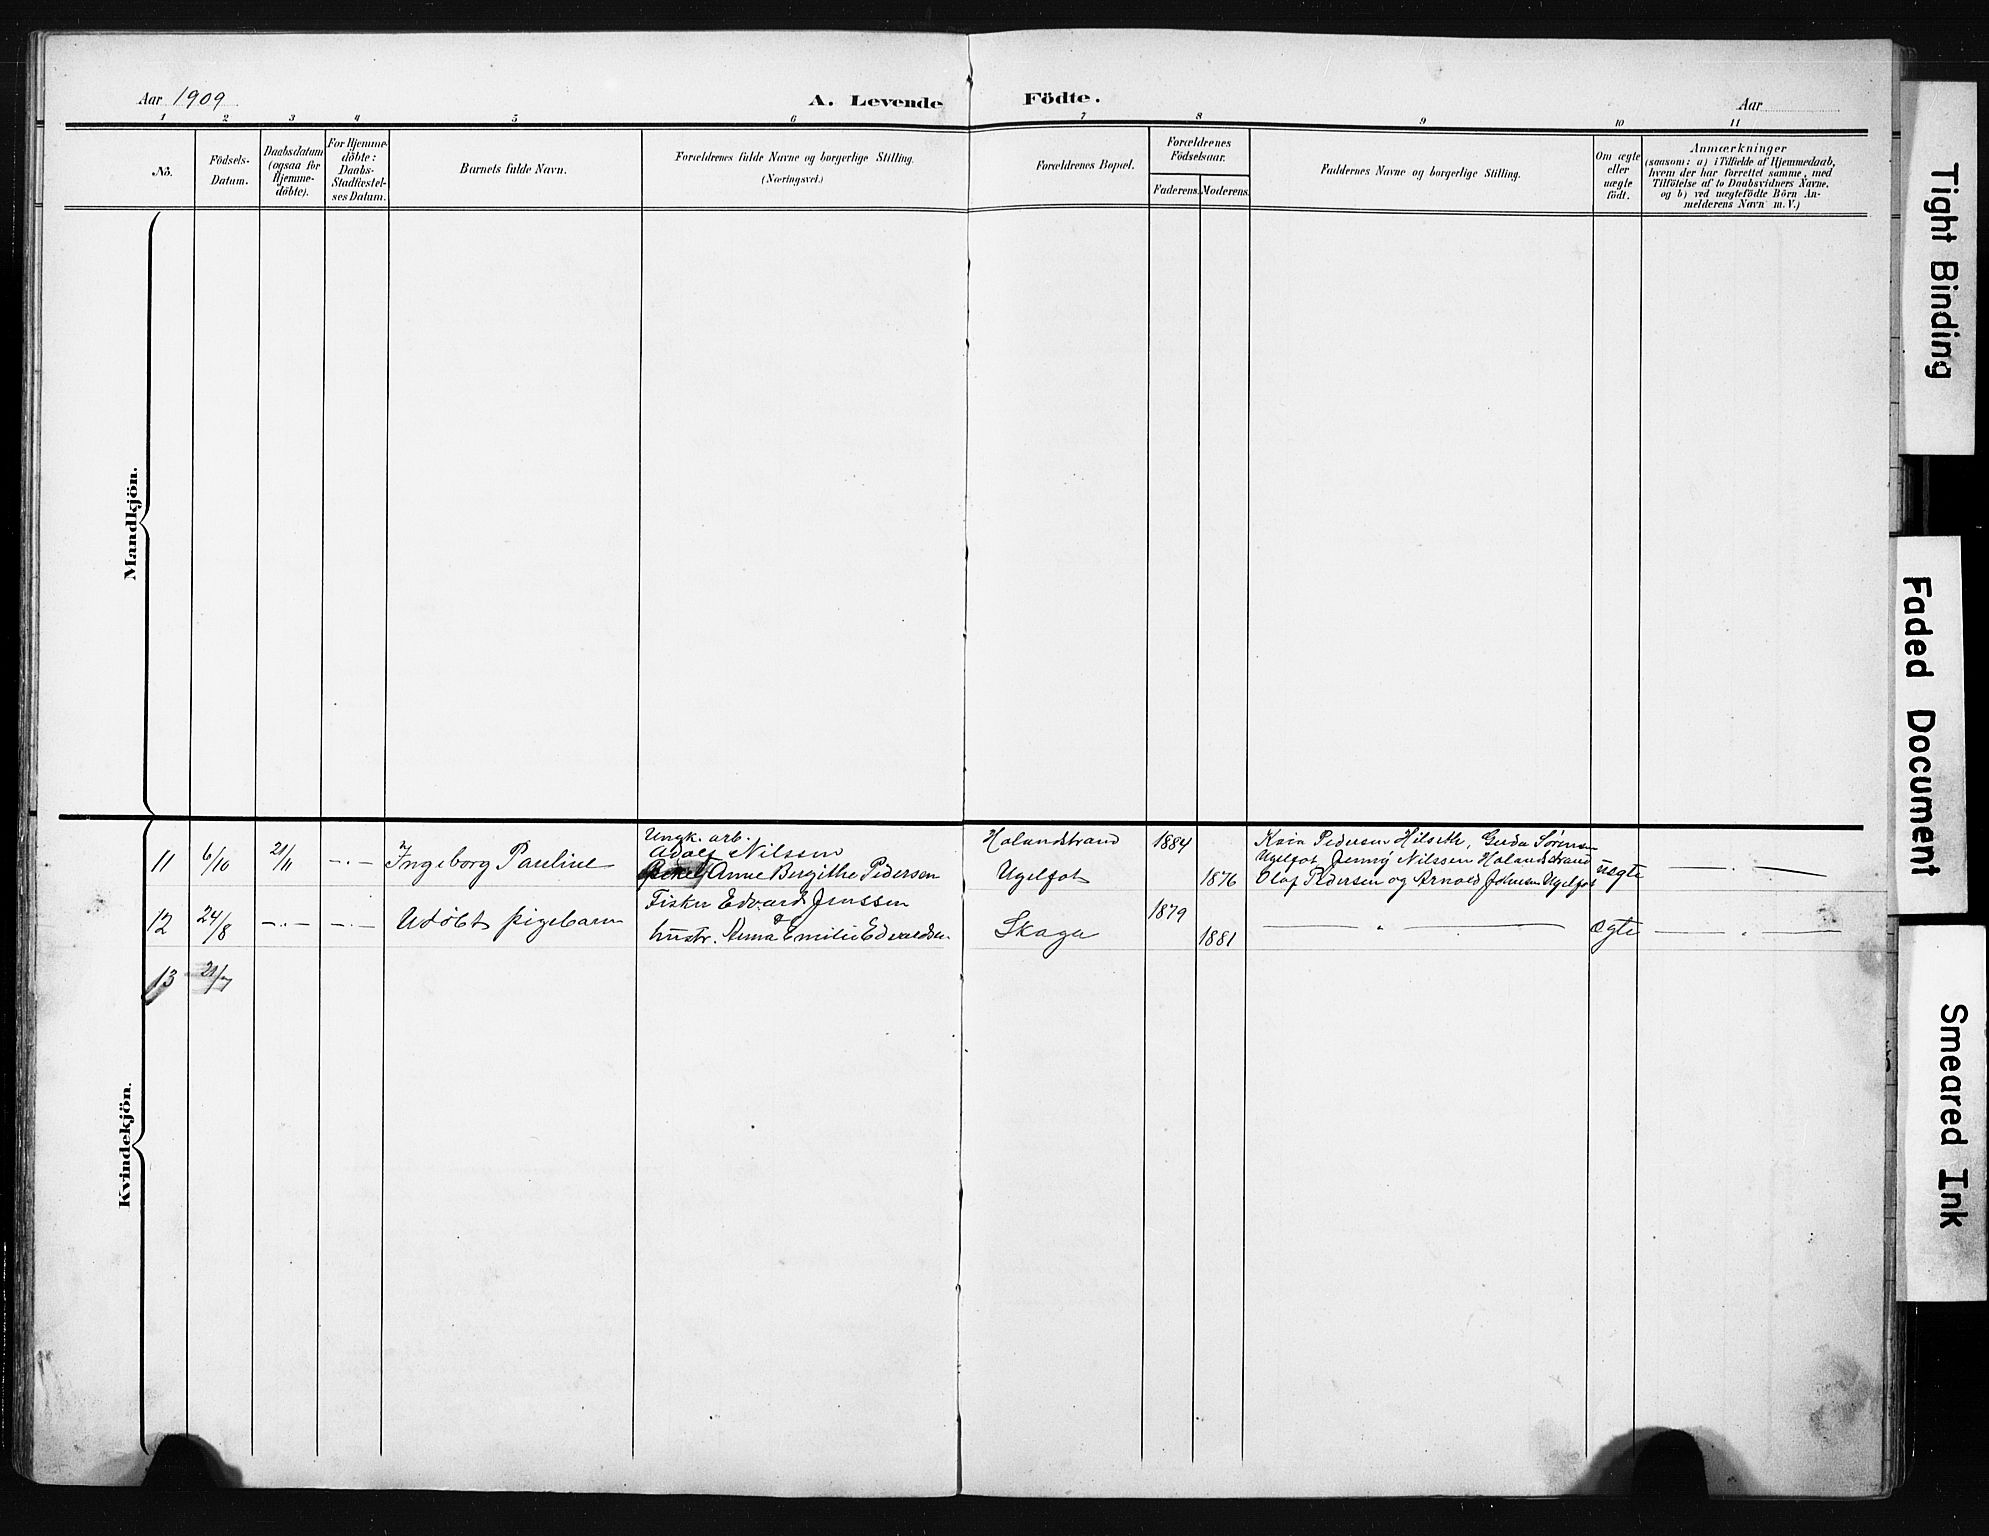 Aar 1909
A. Levende Födte.
Aar
1 2 3 4 5 6 7 8 9 10 11
No.
Födsels-
Datum.
Daabsdatum
(ogsaa for
Hjemme-
döbte).
For Hjemme-
döbte:
Daabs-
Stadfæstel-
ses Datum.
Barnets fulde Navn.
Forældrenes fulde Navne og borgerlige Stilling.
(Næringsvei.)
Forældrenes Bopæl.
Forældrenes
Födselsaar.
Faderens.
Moderens.
Faddernes Navne og borgerlige Stilling.
Om ægte
eller
uægte
födt.
Anmærkninger
(saasom: a) i Tilfælde af Hjemmedaab,
hvem der har forrettet samme, med
Tilföielse af to Daabsvidners Navne,
og b) ved uægtefödte Börn An-
melderens Navn m. V.)
Mandkjön.
Kvindekjön.
11 6/10 21/11 - . - Ingeborg Pauline
Ungk. arb.
Adolf Nilssen
Anne Bergithe Pedersen
Holandstrand
Ugelfot
1884
1876
Pedersen Hilseth, Gerda Sørensen
Ugelfot, Jenny Nilssen Holandstrand
Olaf Pedersen og Arnold Johnsen Ugelfot
uægte
12 24/8 - . - - . - Udöbt pigebarn
Fisker Edvard Jenssen
&
hustr. Anna Emilie Edvardsen
Skaga
1879
1881
Ægte
13 21/7
Tight Binding
Faded Document
Smeared Ink